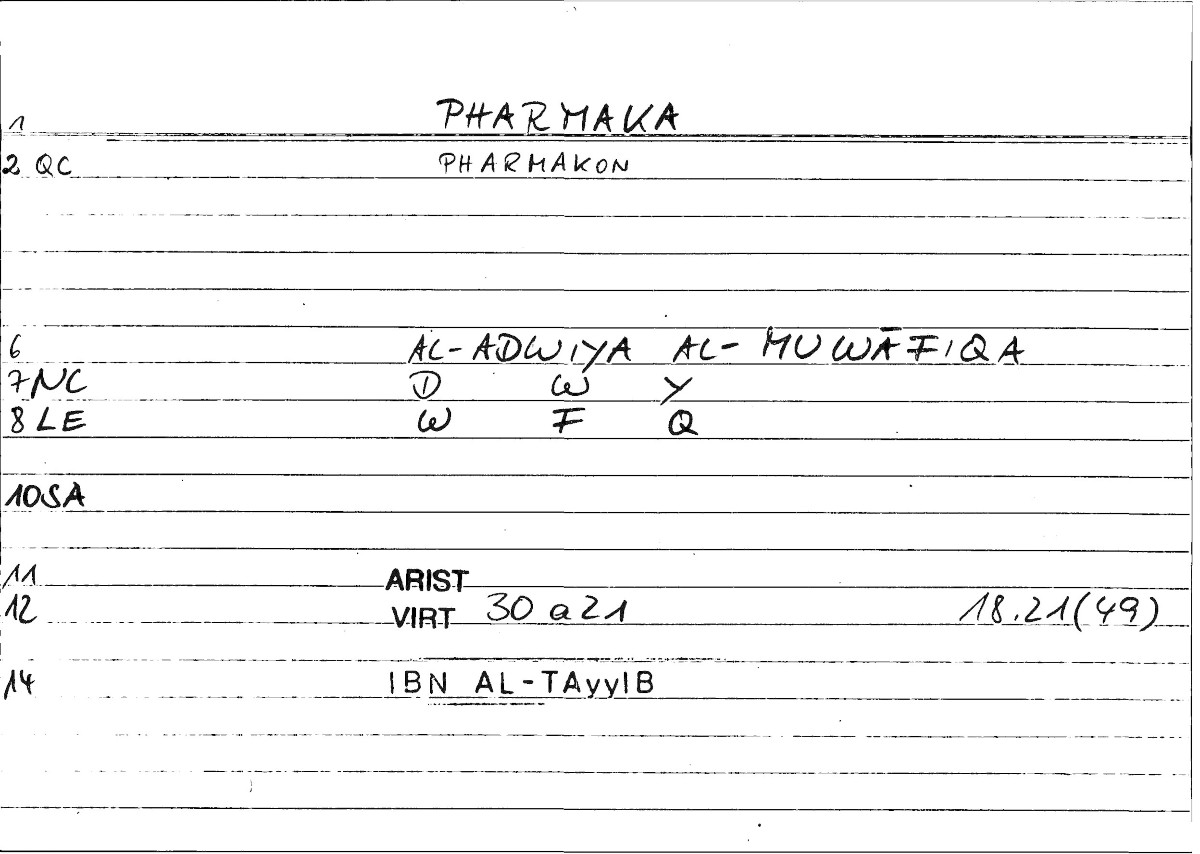 1 PHARMAKA
2 QC PHARMAKON
6 AL-ADWIYA AL-MUWĀFIQA
7 NC D W Y
8 LE W F Q
10 SA
11 ARIST
12 VIRT 30 a 21 18.21(49)
14 IBN AL-TAyyIB